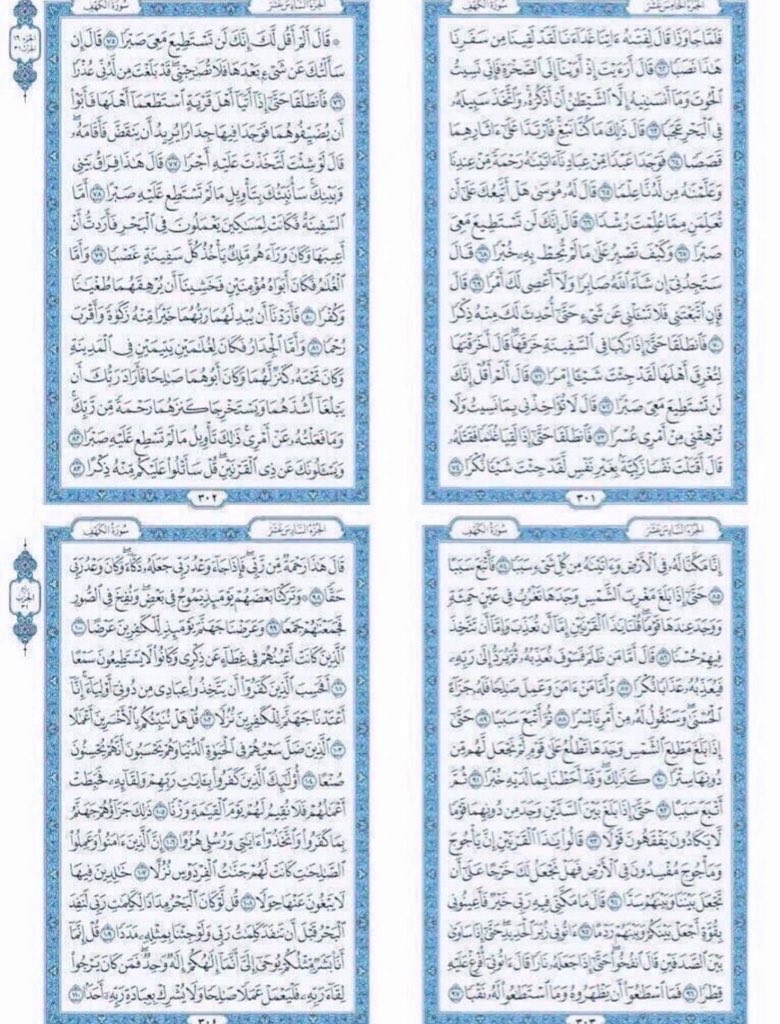 الجزء الخامس عشر
سورة الكهف
فَلَمَّا جَاوَزَا قَالَ لِفَتَىٰهُ ءَاتِنَا غَدَآءَنَا لَقَدْ لَقِينَا مِن سَفَرِنَا
هَٰذَا نَصَبًا ٦٢ قَالَ أَرَءَيْتَ إِذْ أَوَيْنَآ إِلَى ٱلصَّخْرَةِ فَإِنِّي نَسِيتُ
ٱلْحُوتَ وَمَآ أَنسَىٰنِيهُ إِلَّا ٱلشَّيْطَٰنُ أَنْ أَذْكُرَهُۥ وَٱتَّخَذَ سَبِيلَهُۥ
فِي ٱلْبَحْرِ عَجَبًا ٦٣ قَالَ ذَٰلِكَ مَا كُنَّا نَبْغِ فَٱرْتَدَّا عَلَىٰٓ ءَاثَارِهِمَا
قَصَصًا ٦٤ فَوَجَدَا عَبْدًا مِّنْ عِبَادِنَآ ءَاتَيْنَٰهُ رَحْمَةً مِّنْ عِندِنَا
وَعَلَّمْنَٰهُ مِن لَّدُنَّا عِلْمًا ٦٥ قَالَ لَهُۥ مُوسَىٰ هَلْ أَتَّبِعُكَ عَلَىٰٓ أَن
تُعَلِّمَنِ مِمَّا عُلِّمْتَ رُشْدًا ٦٦ قَالَ إِنَّكَ لَن تَسْتَطِيعَ مَعِيَ
صَبْرًا ٦٧ وَكَيْفَ تَصْبِرُ عَلَىٰ مَا لَمْ تُحِطْ بِهِۦ خُبْرًا ٦٨ قَالَ
سَتَجِدُنِيٓ إِن شَآءَ ٱللَّهُ صَابِرًا وَلَآ أَعْصِي لَكَ أَمْرًا ٦٩ قَالَ
فَإِنِ ٱتَّبَعْتَنِي فَلَا تَسْـَٔلْنِي عَن شَيْءٍ حَتَّىٰٓ أُحْدِثَ لَكَ مِنْهُ ذِكْرًا
٧٠ فَٱنطَلَقَا حَتَّىٰٓ إِذَا رَكِبَا فِي ٱلسَّفِينَةِ خَرَقَهَا قَالَ أَخَرَقْتَهَا
لِتُغْرِقَ أَهْلَهَا لَقَدْ جِئْتَ شَيْـًٔا إِمْرًا ٧١ قَالَ أَلَمْ أَقُلْ إِنَّكَ
لَن تَسْتَطِيعَ مَعِيَ صَبْرًا ٧٢ قَالَ لَا تُؤَاخِذْنِي بِمَا نَسِيتُ وَلَا
تُرْهِقْنِي مِنْ أَمْرِي عُسْرًا ٧٣ فَٱنطَلَقَا حَتَّىٰٓ إِذَا لَقِيَا غُلَٰمًا فَقَتَلَهُۥ
قَالَ أَقَتَلْتَ نَفْسًا زَكِيَّةًۢ بِغَيْرِ نَفْسٍ لَّقَدْ جِئْتَ شَيْـًٔا نُّكْرًا ٧٤
٣٠١
الجزء السادس عشر
سورة الكهف
۞ قَالَ أَلَمْ أَقُل لَّكَ إِنَّكَ لَن تَسْتَطِيعَ مَعِيَ صَبْرًا ٧٥ قَالَ إِن
سَأَلْتُكَ عَن شَيْءٍۭ بَعْدَهَا فَلَا تُصَٰحِبْنِي قَدْ بَلَغْتَ مِن لَّدُنِّي عُذْرًا
٧٦ فَٱنطَلَقَا حَتَّىٰٓ إِذَآ أَتَيَآ أَهْلَ قَرْيَةٍ ٱسْتَطْعَمَآ أَهْلَهَا فَأَبَوْا۟
أَن يُضَيِّفُوهُمَا فَوَجَدَا فِيهَا جِدَارًا يُرِيدُ أَن يَنقَضَّ فَأَقَامَهُۥ
قَالَ لَوْ شِئْتَ لَتَّخَذْتَ عَلَيْهِ أَجْرًا ٧٧ قَالَ هَٰذَا فِرَاقُ بَيْنِي
وَبَيْنِكَ سَأُنَبِّئُكَ بِتَأْوِيلِ مَا لَمْ تَسْتَطِع عَّلَيْهِ صَبْرًا ٧٨ أَمَّا
ٱلسَّفِينَةُ فَكَانَتْ لِمَسَٰكِينَ يَعْمَلُونَ فِي ٱلْبَحْرِ فَأَرَدتُّ أَنْ
أَعِيبَهَا وَكَانَ وَرَآءَهُم مَّلِكٌ يَأْخُذُ كُلَّ سَفِينَةٍ غَصْبًا ٧٩ وَأَمَّا
ٱلْغُلَٰمُ فَكَانَ أَبَوَاهُ مُؤْمِنَيْنِ فَخَشِينَآ أَن يُرْهِقَهُمَا طُغْيَٰنًا
وَكُفْرًا ٨٠ فَأَرَدْنَآ أَن يُبْدِلَهُمَا رَبُّهُمَا خَيْرًا مِّنْهُ زَكَوٰةً وَأَقْرَبَ
رُحْمًا ٨١ وَأَمَّا ٱلْجِدَارُ فَكَانَ لِغُلَٰمَيْنِ يَتِيمَيْنِ فِي ٱلْمَدِينَةِ
وَكَانَ تَحْتَهُۥ كَنزٌ لَّهُمَا وَكَانَ أَبُوهُمَا صَٰلِحًا فَأَرَادَ رَبُّكَ أَن
يَبْلُغَآ أَشُدَّهُمَا وَيَسْتَخْرِجَا كَنزَهُمَا رَحْمَةً مِّن رَّبِّكَ
وَمَا فَعَلْتُهُۥ عَنْ أَمْرِي ذَٰلِكَ تَأْوِيلُ مَا لَمْ تَسْطِع عَّلَيْهِ صَبْرًا ٨٢
وَيَسْـَٔلُونَكَ عَن ذِي ٱلْقَرْنَيْنِ قُلْ سَأَتْلُوا۟ عَلَيْكُم مِّنْهُ ذِكْرًا ٨٣
٣٠٢
الجزء السادس عشر
سورة الكهف
إِنَّا مَكَّنَّا لَهُۥ فِي ٱلْأَرْضِ وَءَاتَيْنَٰهُ مِن كُلِّ شَيْءٍ سَبَبًا ٨٤ فَأَتْبَعَ سَبَبًا
٨٥ حَتَّىٰٓ إِذَا بَلَغَ مَغْرِبَ ٱلشَّمْسِ وَجَدَهَا تَغْرُبُ فِي عَيْنٍ حَمِئَةٍ
وَوَجَدَ عِندَهَا قَوْمًا قُلْنَا يَٰذَا ٱلْقَرْنَيْنِ إِمَّآ أَن تُعَذِّبَ وَإِمَّآ أَن تَتَّخِذَ
فِيهِمْ حُسْنًا ٨٦ قَالَ أَمَّا مَن ظَلَمَ فَسَوْفَ نُعَذِّبُهُۥ ثُمَّ يُرَدُّ إِلَىٰ رَبِّهِۦ
فَيُعَذِّبُهُۥ عَذَابًا نُّكْرًا ٨٧ وَأَمَّا مَنْ ءَامَنَ وَعَمِلَ صَٰلِحًا فَلَهُۥ جَزَآءً
ٱلْحُسْنَىٰ وَسَنَقُولُ لَهُۥ مِنْ أَمْرِنَا يُسْرًا ٨٨ ثُمَّ أَتْبَعَ سَبَبًا ٨٩ حَتَّىٰٓ
إِذَا بَلَغَ مَطْلِعَ ٱلشَّمْسِ وَجَدَهَا تَطْلُعُ عَلَىٰ قَوْمٍ لَّمْ نَجْعَل لَّهُم مِّن
دُونِهَا سِتْرًا ٩٠ كَذَٰلِكَ وَقَدْ أَحَطْنَا بِمَا لَدَيْهِ خُبْرًا ٩١ ثُمَّ
أَتْبَعَ سَبَبًا ٩٢ حَتَّىٰٓ إِذَا بَلَغَ بَيْنَ ٱلسَّدَّيْنِ وَجَدَ مِن دُونِهِمَا قَوْمًا
لَّا يَكَادُونَ يَفْقَهُونَ قَوْلًا ٩٣ قَالُوا۟ يَٰذَا ٱلْقَرْنَيْنِ إِنَّ يَأْجُوجَ
وَمَأْجُوجَ مُفْسِدُونَ فِي ٱلْأَرْضِ فَهَلْ نَجْعَلُ لَكَ خَرْجًا عَلَىٰٓ أَن
تَجْعَلَ بَيْنَنَا وَبَيْنَهُمْ سَدًّا ٩٤ قَالَ مَا مَكَّنِّي فِيهِ رَبِّي خَيْرٌ فَأَعِينُونِي
بِقُوَّةٍ أَجْعَلْ بَيْنَكُمْ وَبَيْنَهُمْ رَدْمًا ٩٥ ءَاتُونِي زُبَرَ ٱلْحَدِيدِ حَتَّىٰٓ إِذَا سَاوَىٰ
بَيْنَ ٱلصَّدَفَيْنِ قَالَ ٱنفُخُوا۟ حَتَّىٰٓ إِذَا جَعَلَهُۥ نَارًا قَالَ ءَاتُونِيٓ أُفْرِغْ عَلَيْهِ
قِطْرًا ٩٦ فَمَا ٱسْطَٰعُوٓا۟ أَن يَظْهَرُوهُ وَمَا ٱسْتَطَٰعُوا۟ لَهُۥ نَقْبًا ٩٧
٣٠٣
الجزء السادس عشر
سورة الكهف
قَالَ هَٰذَا رَحْمَةٌ مِّن رَّبِّي فَإِذَا جَآءَ وَعْدُ رَبِّي جَعَلَهُۥ دَكَّآءَ وَكَانَ وَعْدُ رَبِّي
حَقًّا ٩٨ ۞ وَتَرَكْنَا بَعْضَهُمْ يَوْمَئِذٍ يَمُوجُ فِي بَعْضٍ وَنُفِخَ فِي ٱلصُّورِ
فَجَمَعْنَٰهُمْ جَمْعًا ٩٩ وَعَرَضْنَا جَهَنَّمَ يَوْمَئِذٍ لِّلْكَٰفِرِينَ عَرْضًا ١٠٠
ٱلَّذِينَ كَانَتْ أَعْيُنُهُمْ فِي غِطَآءٍ عَن ذِكْرِي وَكَانُوا۟ لَا يَسْتَطِيعُونَ سَمْعًا
١٠١ أَفَحَسِبَ ٱلَّذِينَ كَفَرُوٓا۟ أَن يَتَّخِذُوا۟ عِبَادِي مِن دُونِيٓ أَوْلِيَآءَ إِنَّآ
أَعْتَدْنَا جَهَنَّمَ لِلْكَٰفِرِينَ نُزُلًا ١٠٢ قُلْ هَلْ نُنَبِّئُكُم بِٱلْأَخْسَرِينَ أَعْمَٰلًا
١٠٣ ٱلَّذِينَ ضَلَّ سَعْيُهُمْ فِي ٱلْحَيَوٰةِ ٱلدُّنْيَا وَهُمْ يَحْسَبُونَ أَنَّهُمْ يُحْسِنُونَ
صُنْعًا ١٠٤ أُو۟لَٰٓئِكَ ٱلَّذِينَ كَفَرُوا۟ بِـَٔايَٰتِ رَبِّهِمْ وَلِقَآئِهِۦ فَحَبِطَتْ
أَعْمَٰلُهُمْ فَلَا نُقِيمُ لَهُمْ يَوْمَ ٱلْقِيَٰمَةِ وَزْنًا ١٠٥ ذَٰلِكَ جَزَآؤُهُمْ جَهَنَّمُ
بِمَا كَفَرُوا۟ وَٱتَّخَذُوٓا۟ ءَايَٰتِي وَرُسُلِي هُزُوًا ١٠٦ إِنَّ ٱلَّذِينَ ءَامَنُوا۟ وَعَمِلُوا۟
ٱلصَّٰلِحَٰتِ كَانَتْ لَهُمْ جَنَّٰتُ ٱلْفِرْدَوْسِ نُزُلًا ١٠٧ خَٰلِدِينَ فِيهَا
لَا يَبْغُونَ عَنْهَا حِوَلًا ١٠٨ قُل لَّوْ كَانَ ٱلْبَحْرُ مِدَادًا لِّكَلِمَٰتِ رَبِّي لَنَفِدَ
ٱلْبَحْرُ قَبْلَ أَن تَنفَدَ كَلِمَٰتُ رَبِّي وَلَوْ جِئْنَا بِمِثْلِهِۦ مَدَدًا ١٠٩ قُلْ إِنَّمَآ
أَنَا۠ بَشَرٌ مِّثْلُكُمْ يُوحَىٰٓ إِلَيَّ أَنَّمَآ إِلَٰهُكُمْ إِلَٰهٌ وَٰحِدٌ فَمَن كَانَ يَرْجُوا۟
لِقَآءَ رَبِّهِۦ فَلْيَعْمَلْ عَمَلًا صَٰلِحًا وَلَا يُشْرِكْ بِعِبَادَةِ رَبِّهِۦٓ أَحَدًۢا ١١٠
٣٠٤